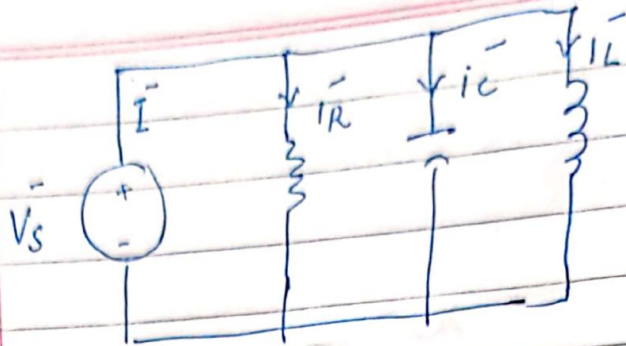 Ī
i̅R
i̅C
i̅L
V̄s
+
-